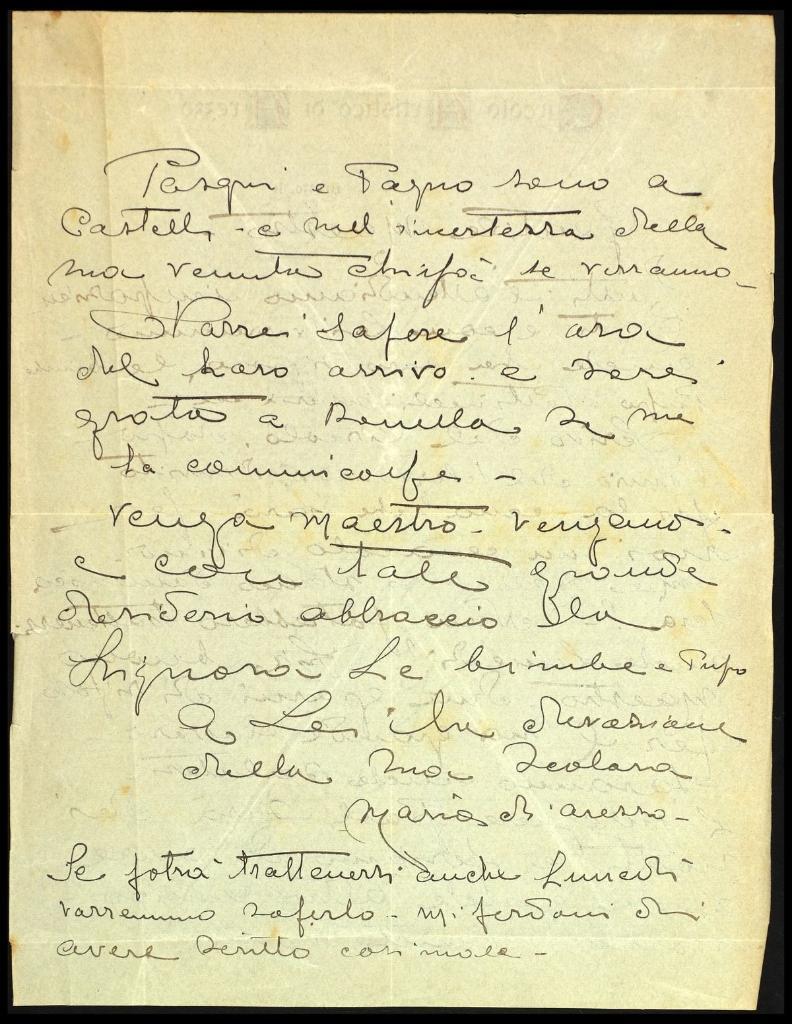 Pasqui e Fagno sono a
Castelli - e nell'incertezza della
sua venuta chissà se verranno -
Vorrei sapere l'ora
del loro arrivo. e sarei
grata a Donella se me
la comunicasse -
Venga Maestro - Vengano -
e con tale grande
desiderio abbraccio la
Signora Le bimbe e Pupo
A Lei la devozione
della sua scolara
Maria di Arezzo -
Se potrà trattenersi anche Lunedì
vorremmo saperlo - Mi perdoni di
avere scritto così male -